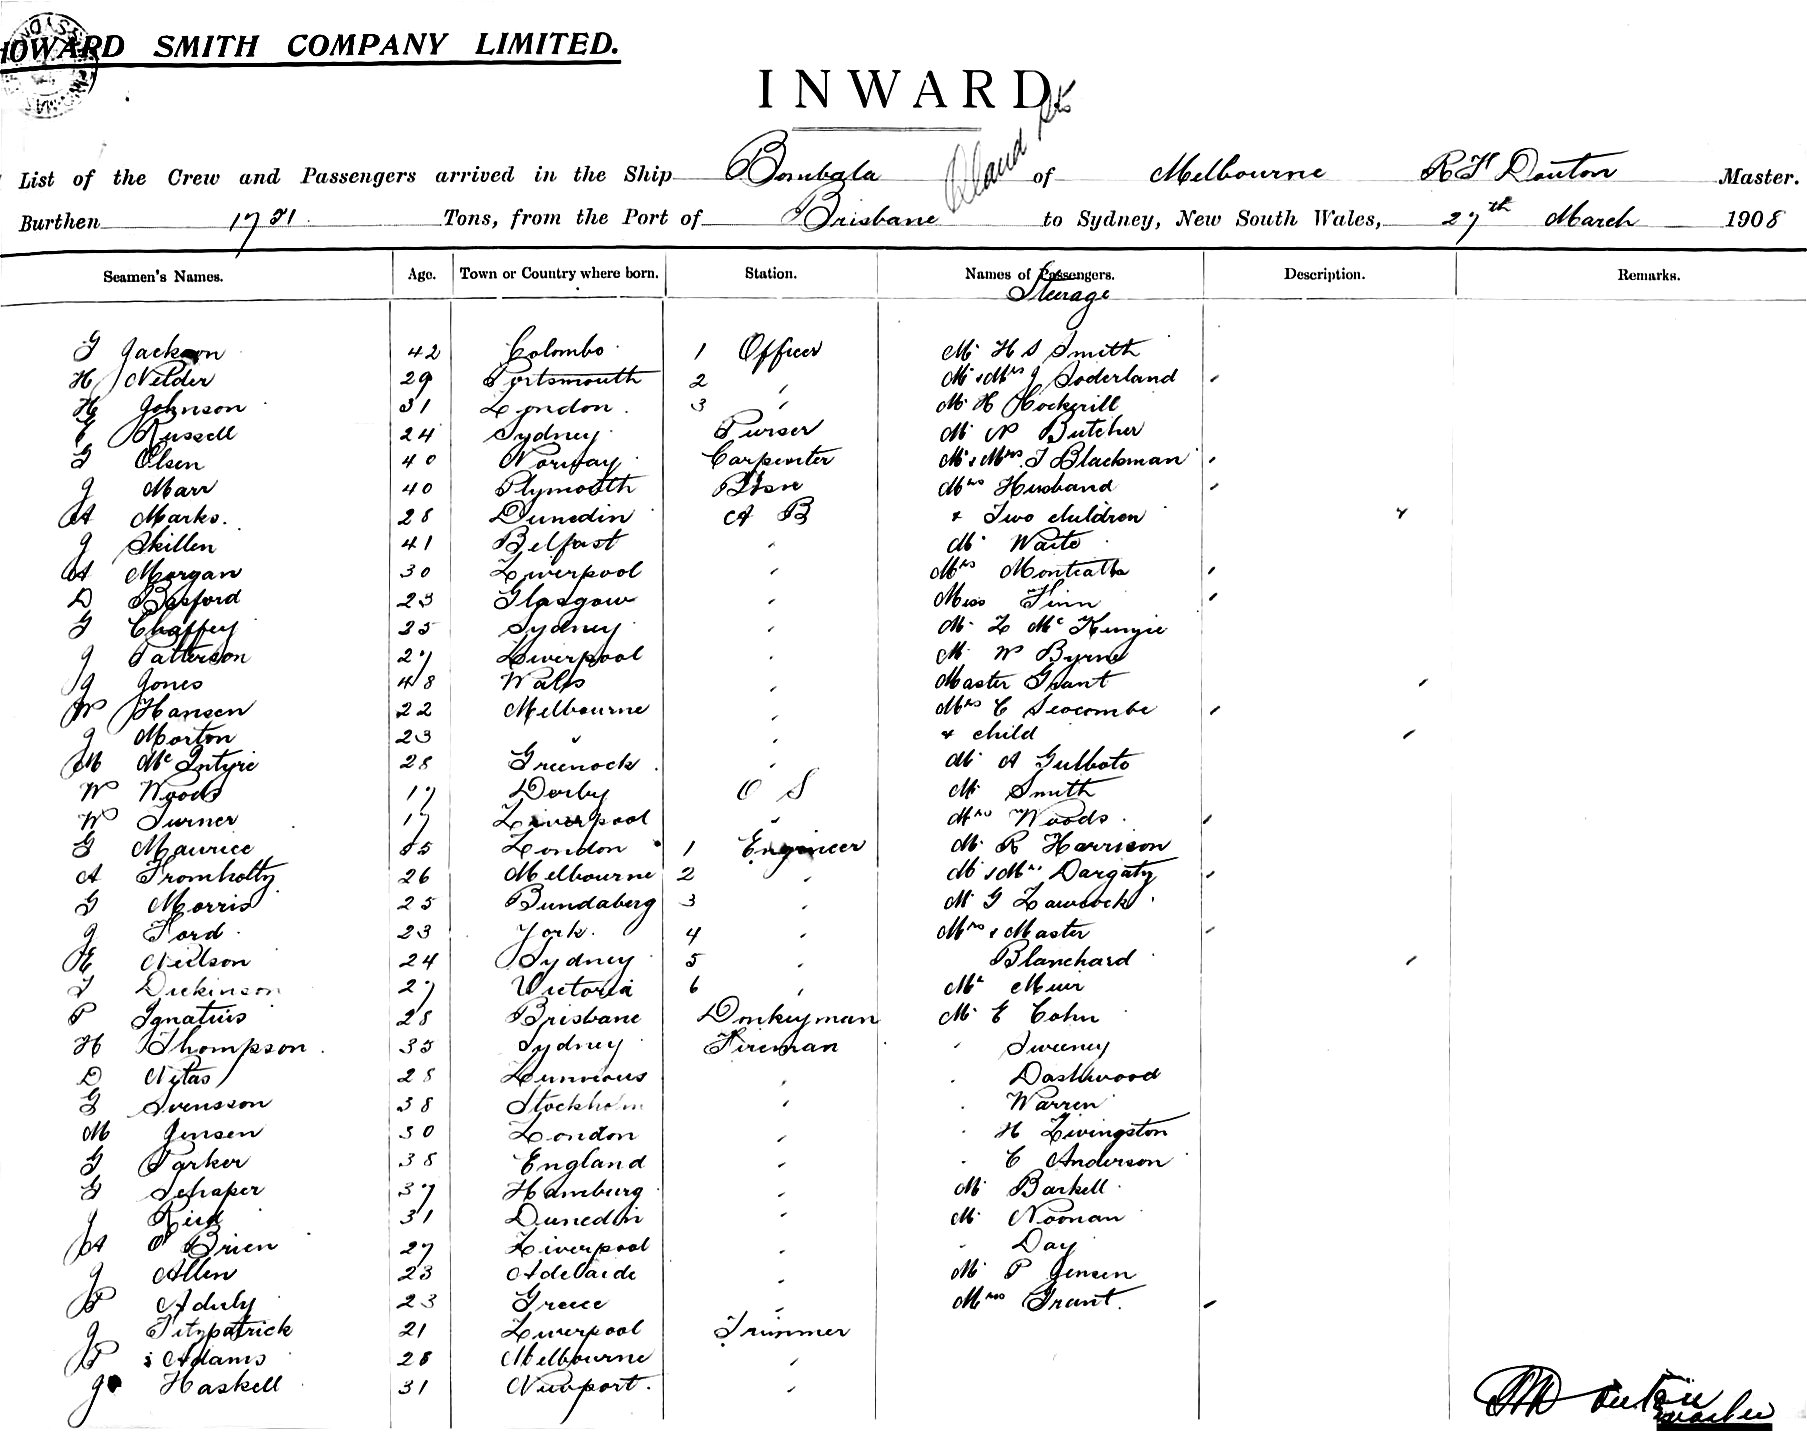 HOWARD SMITH COMPANY LIMITED.
INWARD
List of the Crew and Passengers arrived in the Ship Bombala of Melbourne R H Douton Master.
Burthen 1731 Tons, from the Port of Brisbane to Sydney, New South Wales, 27th March 1908
Seamen's Names. Age. Town or Country where born. Station. Names of Passengers. Description. Remarks.
Steerage
G Jackson 42 Colombo 1 Officer Mr H S Smith
H Nelder 29 Portsmouth 2 " Mr & Mrs J Soderland
H Johnson 31 London 3 " Mr H Cockerill
E Russell 24 Sydney Purser Mr N Butcher
G Olsen 40 Norway Carpenter Mr & Mrs T Blackman
J Marr 40 Plymouth Bosn Mrs Husband
A Marks. 28 Dunedin A B & Two children
J Skillen 41 Belfast " Mr Waite
A Morgan 30 Liverpool " Mrs Montcatt
D Basford 23 Glasgow " Miss Finn
G Chaffey 35 Sydney " Mr L McKenzie
J Patterson 27 Liverpool " Mr W Byrne
J Jones 48 Wales " Master Grant
W Hansen 22 Melbourne " Mrs C Seccombe
J Morton 23 " " & child
M McIntyre 28 Greenock " Mr A Gulboto
W Woods 17 Derby O S Mr Smith
W Turner 17 Liverpool " Mrs Woods
G Maurice 55 London 1 Engineer Mr R Harrison
A Fromholtz 26 Melbourne 2 " Mr & Mrs Dargaty
G Morris 25 Bundaberg 3 " Mr G Lawcock
J Ford 23 York. 4 " Mrs & Master
E Neilson 24 Sydney 5 " Blanchard
T Dickinson 27 Victoria 6 " Mr Muir
P Ignatius 28 Brisbane Donkeyman Mr E Cohn
H Thompson 35 Sydney Fireman " Sweeney
D Nylas 28 " " Dashwood
G Svensson 38 Stockholm " " Warren
M Jensen 30 London " " H Livingston
G Parker 38 England " " C Anderson
G Schaper 37 Hamburg " Mr Barkell
J Reid 31 Dunedin " Mr Noonan
A O'Brien 27 Liverpool " " Day
J Allen 23 Adelaide " Mr P Jensen
P Aduly 23 Greece " Mrs Grant.
J Fitzpatrick 21 Liverpool Trimmer
P Adams 28 Melbourne "
J Haskell 31 Newport. "
R H Douton
Master